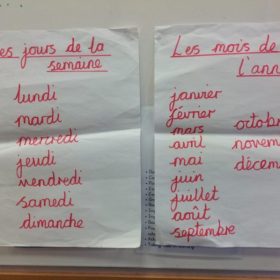 es jours de la
semaine
lundi
mardi
mercredi
jeudi
vendredi
samedi
dimanche
Les mois de
l'ann
janvier
février
mars
avril
mai
juin
juillet
août
septembre
octob
novem
décem